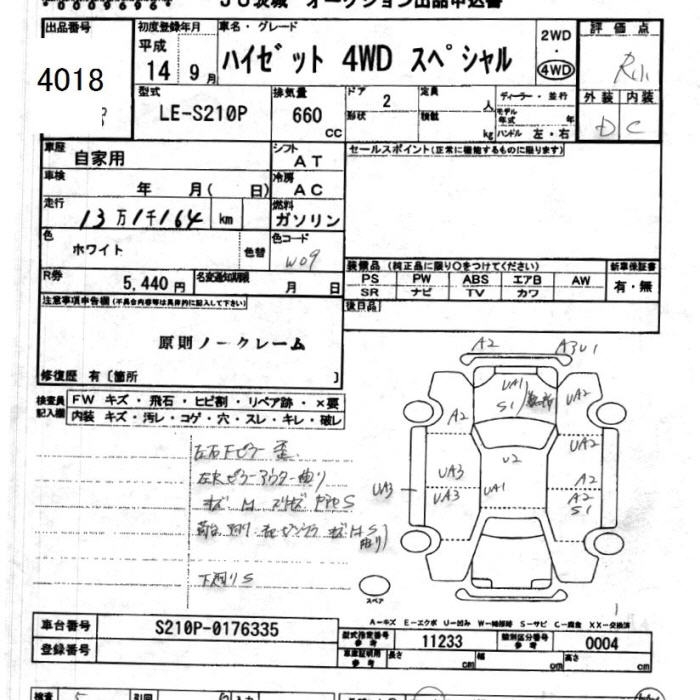 JU茨城 オークション出品申込書
出品番号
4018
初度登録年月
平成
14 9月
車名・グレード
ハイゼット 4WD スペシャル
2WD
・
4WD
評価点
外装 内装
D C
型式
LE-S210P
排気量
660
cc
ドア 2
形状
定員 人
積載 kg
ディーラー・並行
モデル年式 年
ハンドル 左・右
車歴
自家用
シフト
AT
セールスポイント(正常に機能するものに限ります)
車検
年 月( 日)
冷房
AC
走行
13万1千164 km
燃料
ガソリン
色
ホワイト
色替
色コード
W09
R券
5,440円
名変通知期限
月 日
装備品 (純正品に限り○をつけてください)
PS PW ABS エアB AW
SR ナビ TV カワ
新車保証書
有・無
後日品
注意事項申告欄(不具合内容等は具体的に記入して下さい)
原則ノークレーム
修復歴 有〔箇所 〕
検査員
記入欄
FW キズ・飛石・ヒビ割・リペア跡・×要
内装 キズ・汚レ・コゲ・穴・スレ・キレ・破レ
A2 A3U1
UA1
S1
A2 UA2
U2
UA2
UA3
UA3 UA3 UA1
A2
A2
S1
下廻りS
スペア
A－キズ E－エクボ U－凹み W－補修跡 S－サビ C－腐食 XX－交換済
車台番号
S210P-0176335
登録番号
型式指定番号
参考
11233
類別区分番号
参考
0004
車庫証明用
参考
長さ cm
幅 cm
高さ cm